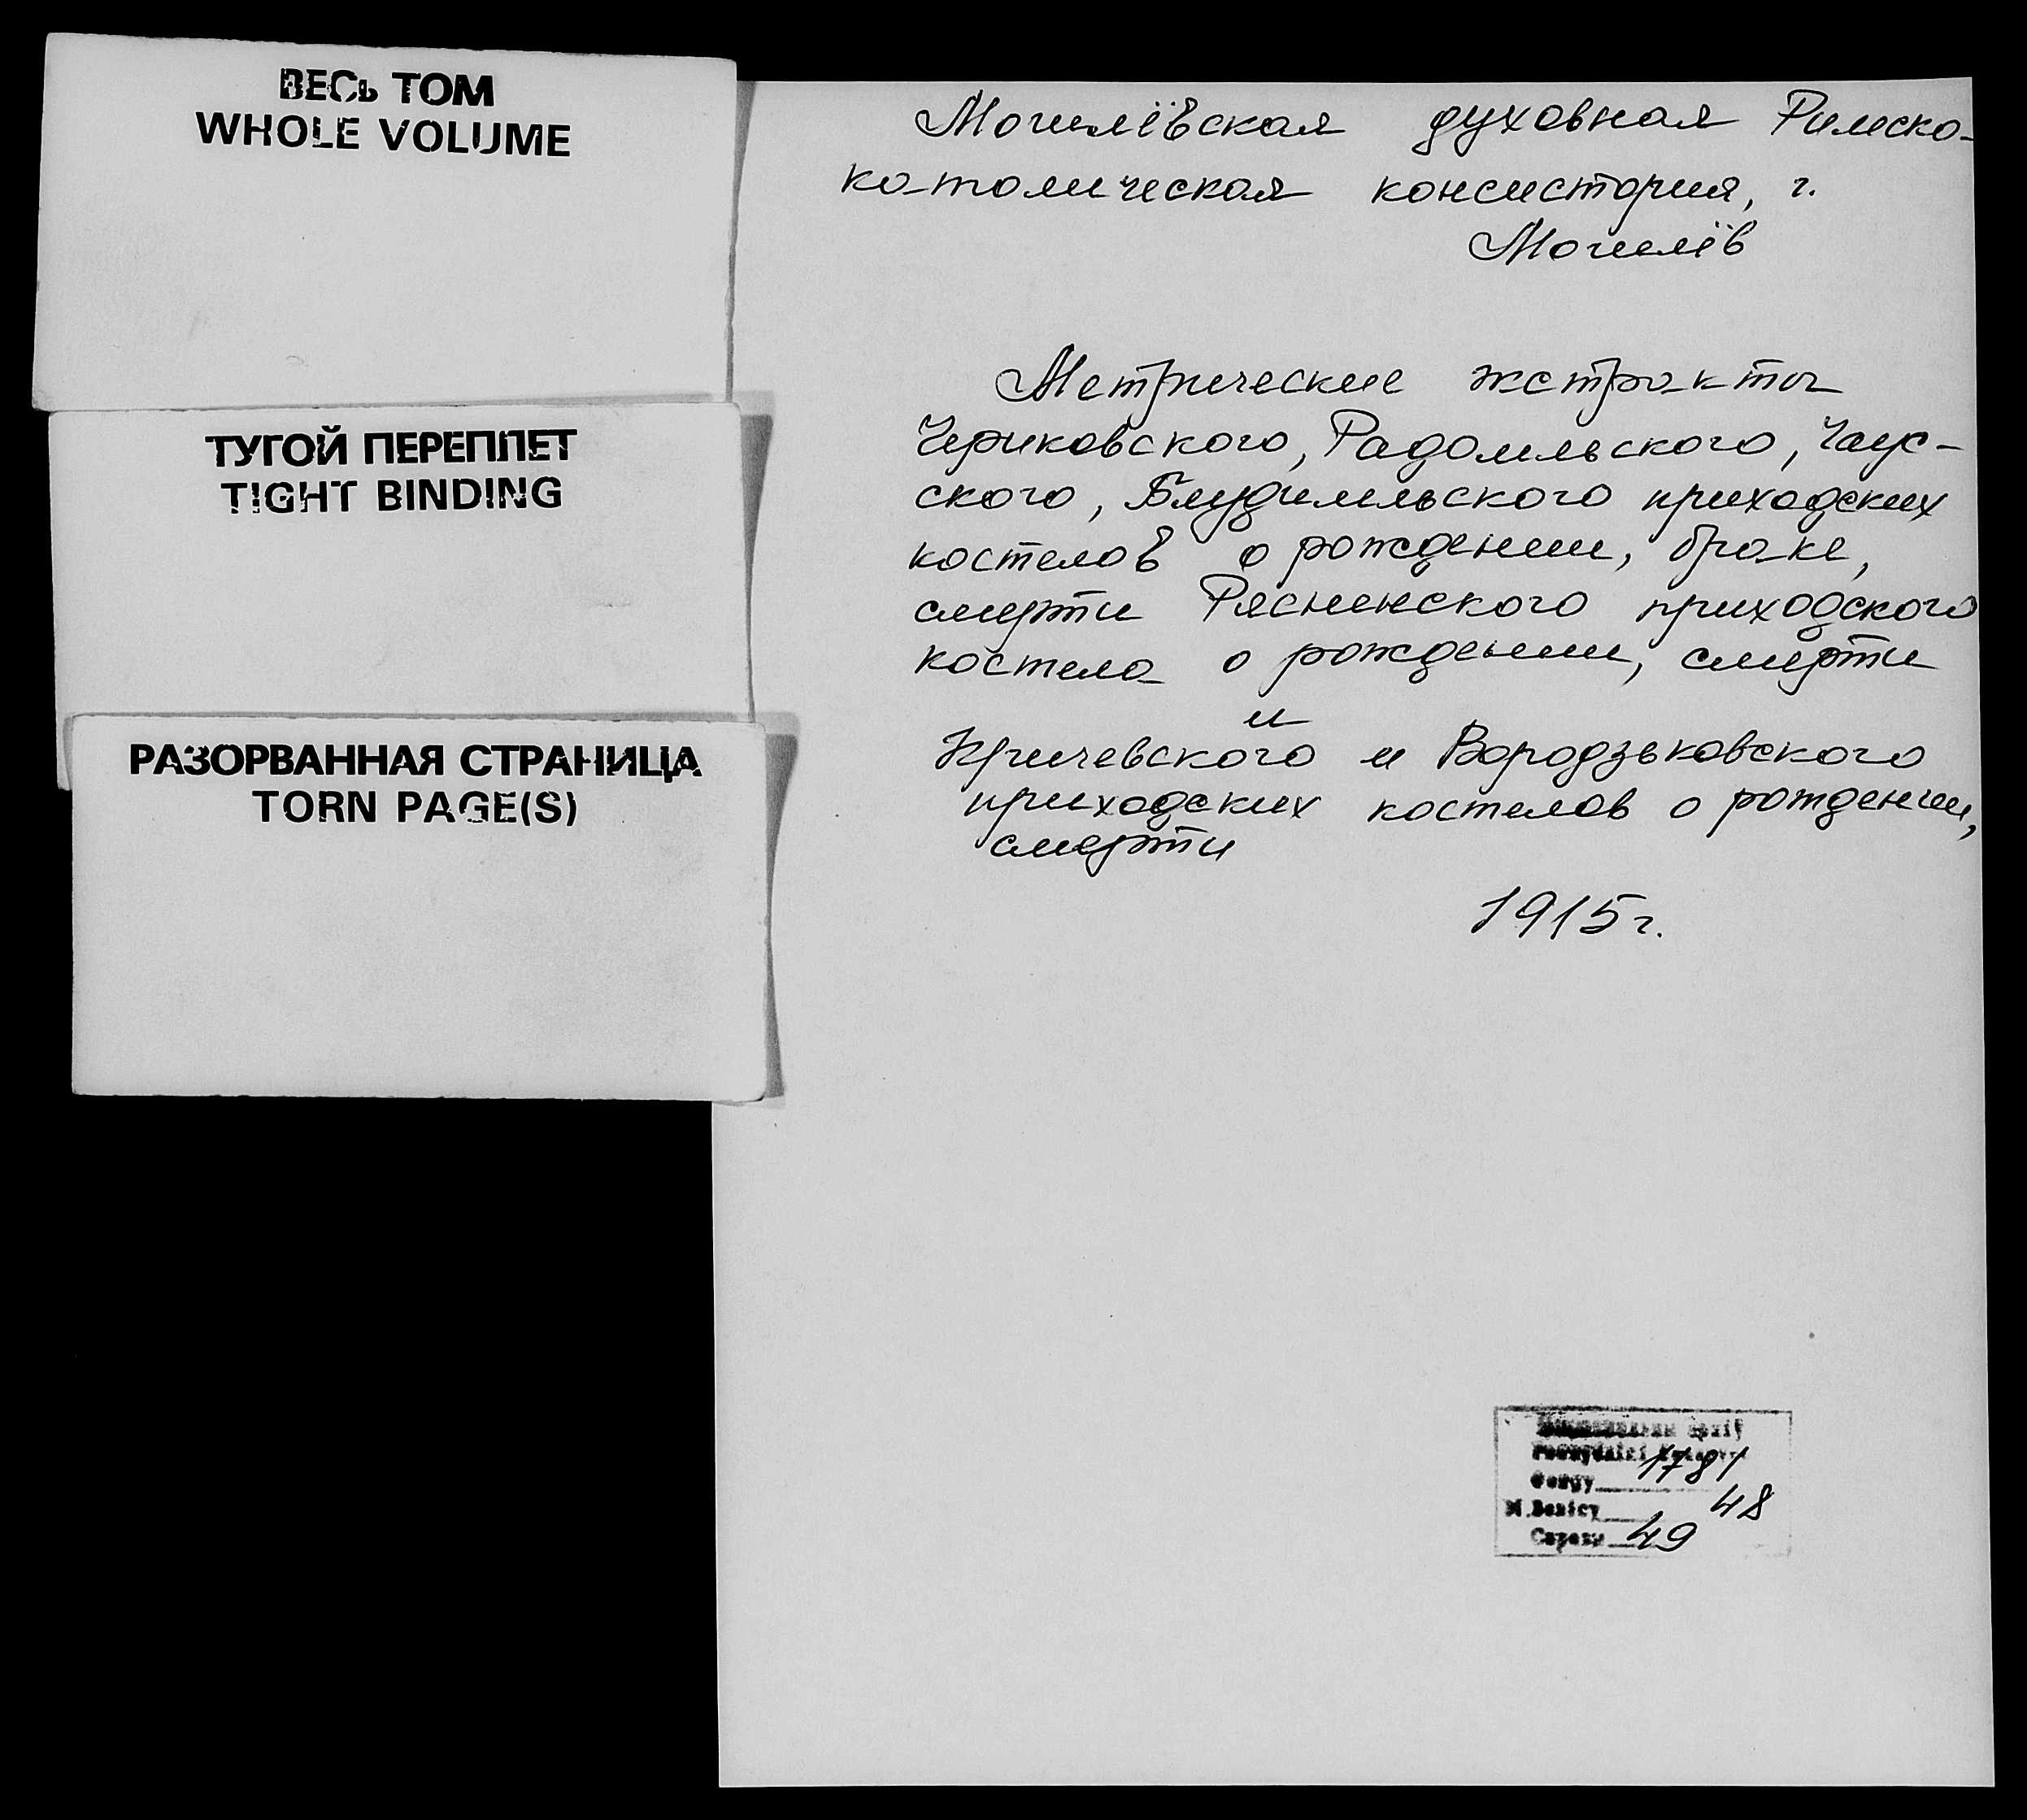 ВЕСЬ ТОМ
WHOLE VOLUME
ТУГОЙ ПЕРЕПЛЕТ
TIGHT BINDING
РАЗОРВАННАЯ СТРАНИЦА
TORN PAGE(S)
Могилёвская духовная Римско-
католическая консистория, г.
Могилёв
Метрические экстракты
Чериковского, Радомльского, Чаус-
ского, Блудимльского приходских
костелов о рождении, браке,
смерти Рясненского приходского
костела о рождении, смерти
и
Кричевского и Вородзьковского
приходских костелов о рождении,
смерти
1915 г.
1781
Фонду
48
Н.Вопісу
49